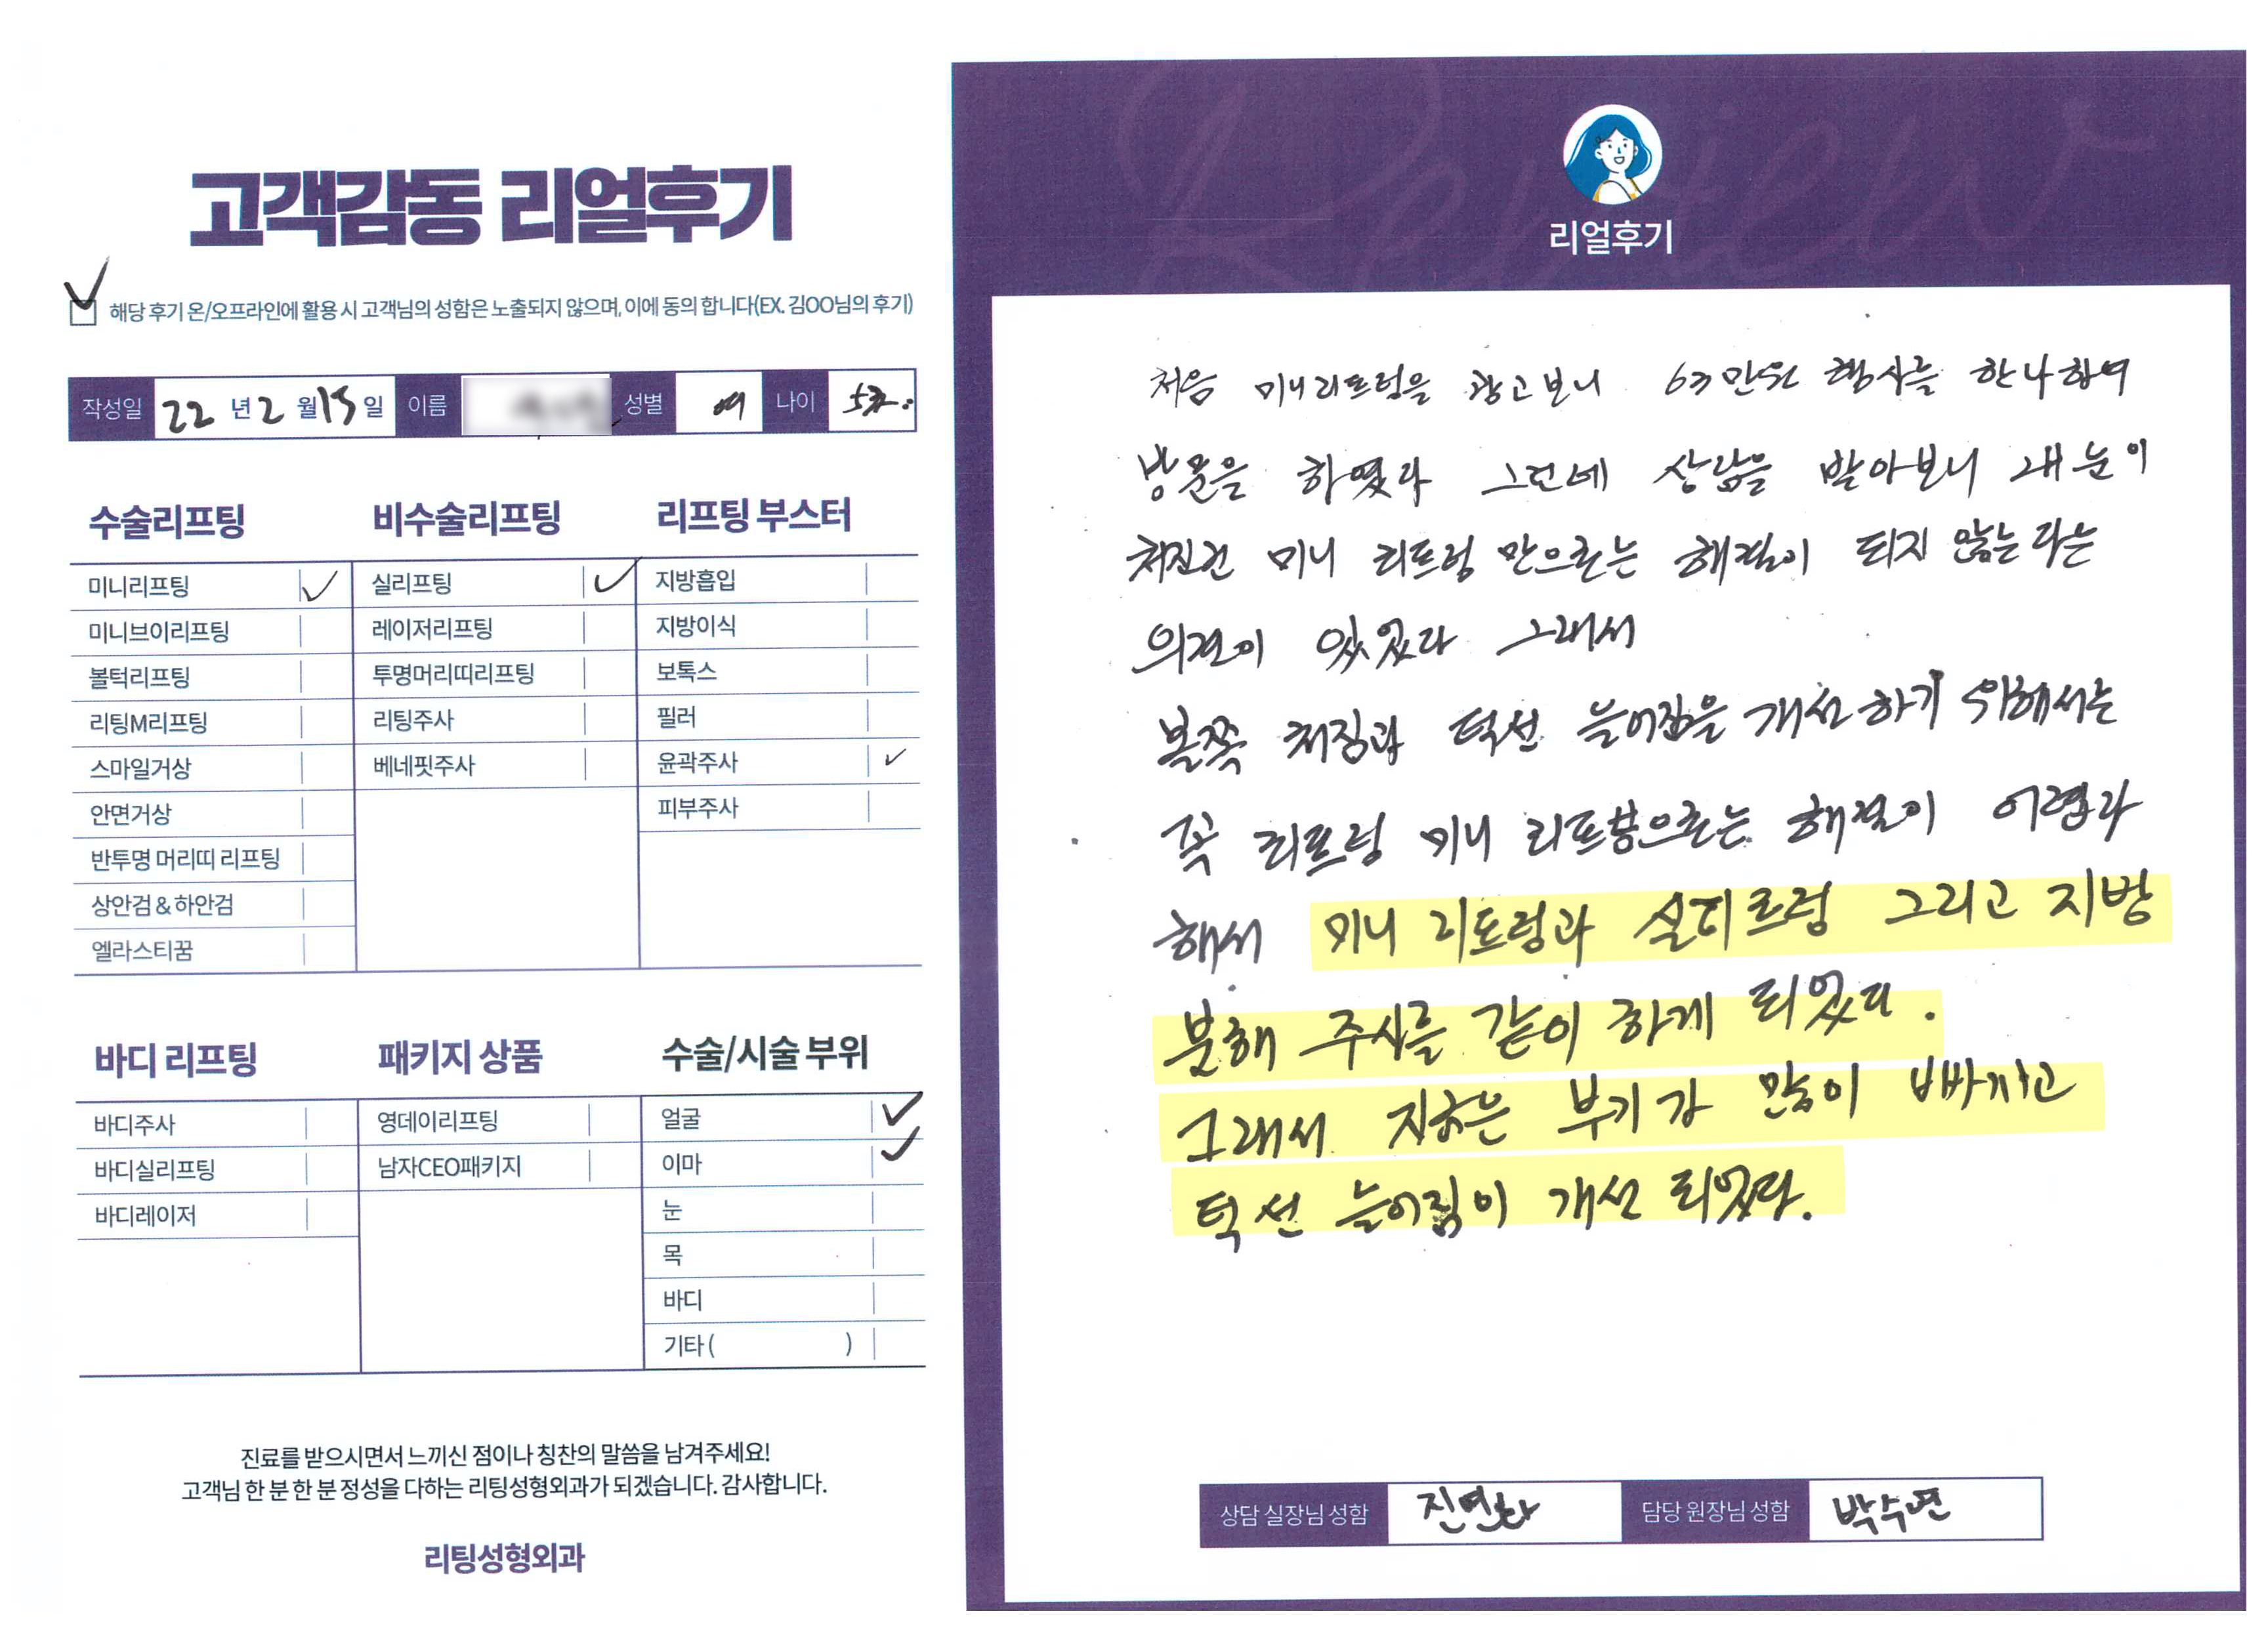 고객감동 리얼후기
해당 후기 온/오프라인에 활용 시 고객님의 성함은 노출되지 않으며, 이에 동의 합니다(EX. 김OO님의 후기)
작성일 22 년 2 월 15 일 이름 성별 여 나이
수술리프팅
미니리프팅
미니브이리프팅
볼턱리프팅
리팅M리프팅
스마일거상
안면거상
반투명 머리띠 리프팅
상안검 & 하안검
엘라스티꿈
비수술리프팅
실리프팅
레이저리프팅
투명머리띠리프팅
리팅주사
베네핏주사
리프팅 부스터
지방흡입
지방이식
보톡스
필러
윤곽주사
피부주사
바디 리프팅
바디주사
바디실리프팅
바디레이저
패키지 상품
영데이리프팅
남자CEO패키지
수술/시술 부위
얼굴
이마
눈
목
바디
기타 ( )
진료를 받으시면서 느끼신 점이나 칭찬의 말씀을 남겨주세요!
고객님 한 분 한 분 정성을 다하는 리팅성형외과가 되겠습니다. 감사합니다.
리팅성형외과
Review
리얼후기
처음 미니리프팅을 광고보니 63만원 행사를 한다하여
방문을 하였다 그런데 상담을 받아보니 내 눈이
처진건 미니 리프팅 만으로는 해결이 되지 않는다는
의견이 있었다 그래서
볼쪽 처짐과 턱선 늘어짐을 개선하기 위해서는
꼭 리프팅 미니 으로는 해결이 어렵다
해서 미니 리프팅과 실리프팅 그리고 지방
분해 주사를 같이 하게 되었다.
그래서 지금은 부기가 많이 빠지고
턱선 늘어짐이 개선 되었다.
상담 실장님 성함 담당 원장님 성함 박수연